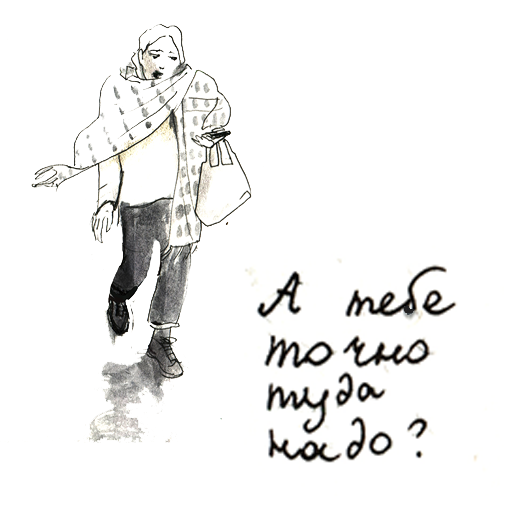 А тебе
точно
туда
надо?